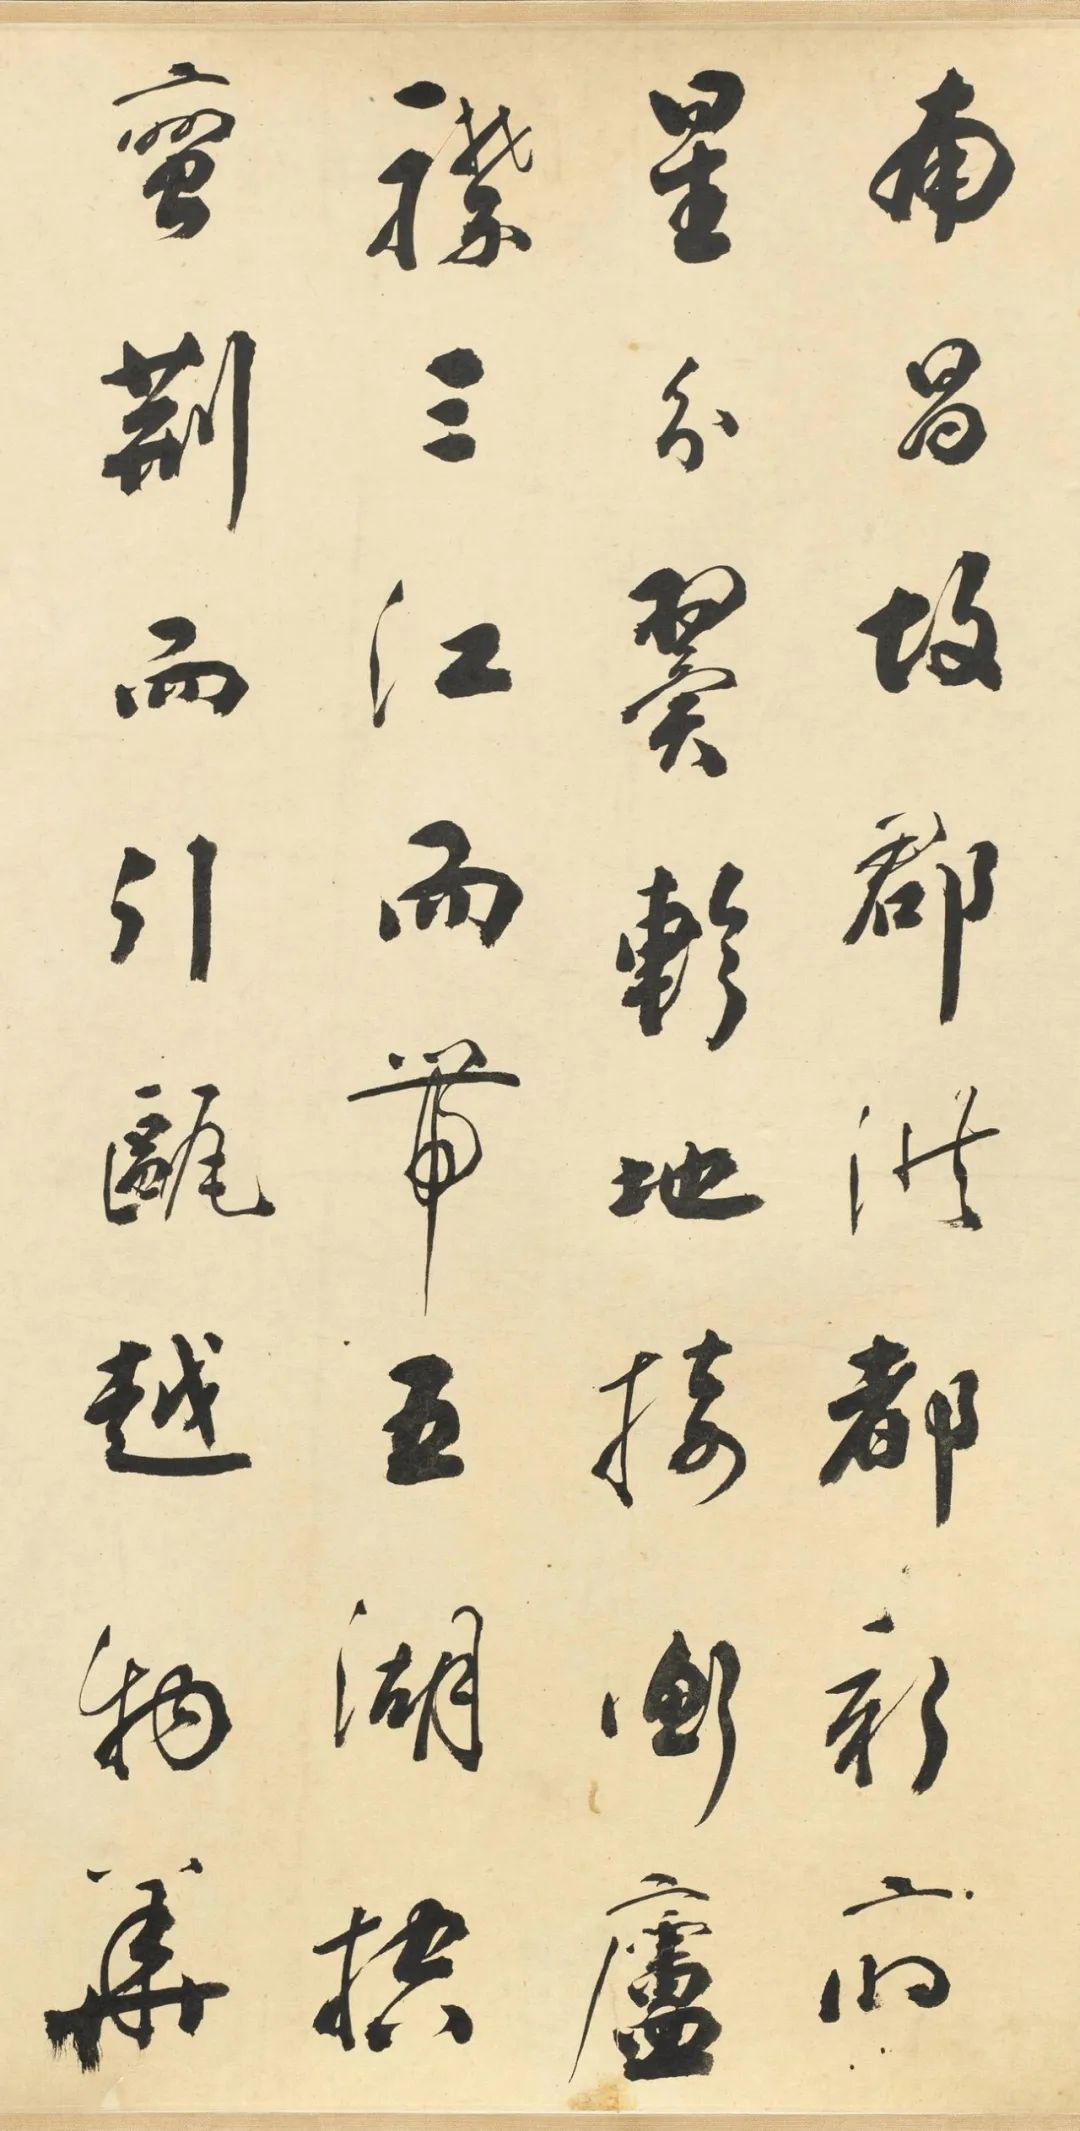 南昌故郡洪都新府
星分翼軫地接衡廬
襟三江而帶五湖控
蠻荊而引甌越物華